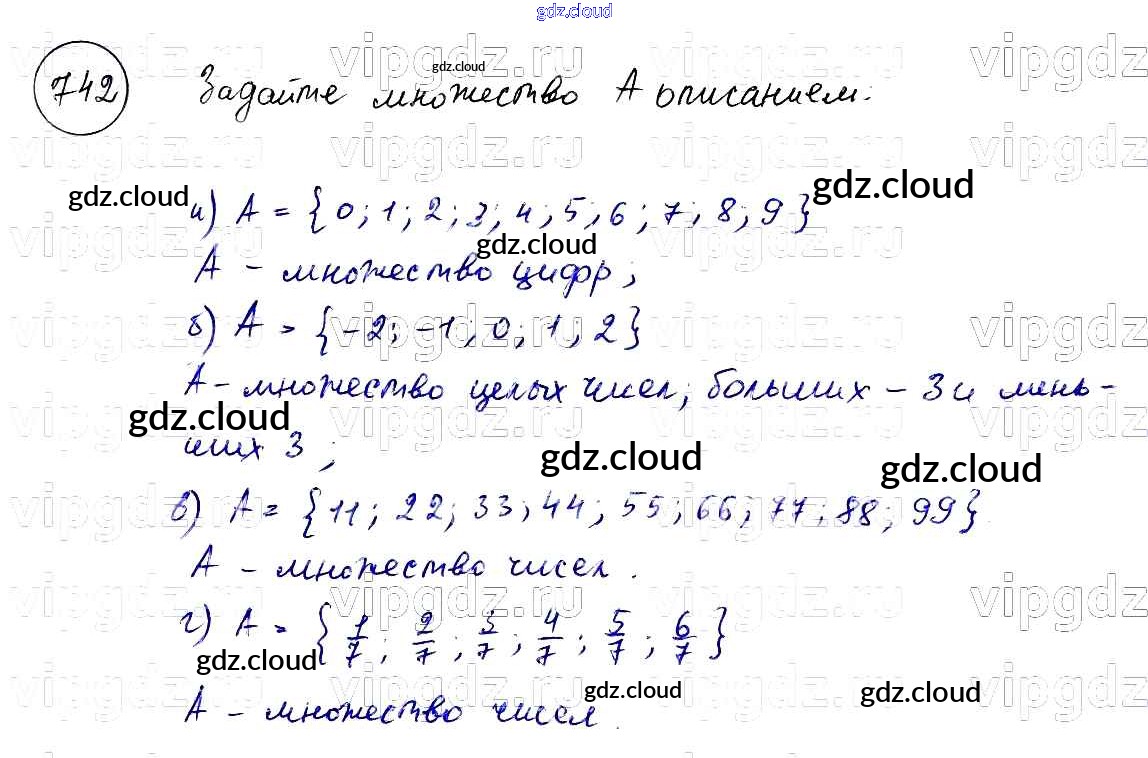 gdz.cloud
vipgdz.ru gdz.cloud vipgdz.ru vipgdz
742 Задайте множество А описанием:
vipgdz.ru vipgdz.ru vipgdz
gdz.cloud gdz.cloud
а) А = {0; 1; 2; 3; 4; 5; 6; 7; 8; 9}
gdz.cloud
А - множество цифр;
б) А = {-2; -1; 0; 1; 2}
vipgdz.ru vipgdz.ru vipgdz
А - множество целых чисел, больших -3 и мень-
gdz.cloud
vipgdz.ru vipgdz.ru vipgdz
ших 3;
gdz.cloud gdz.cloud
в) А = {11; 22; 33; 44; 55; 66; 77; 88; 99}
vipgdz.ru vipgdz.ru vipgdz
А - множество чисел.
vipgdz.ru vipgdz.ru vipgdz
г) А = {1/7; 2/7; 3/7; 4/7; 5/7; 6/7}
gdz.cloud
vipgdz.ru vipgdz.ru vipgdz
gdz.cloud gdz.cloud
А - множество чисел.